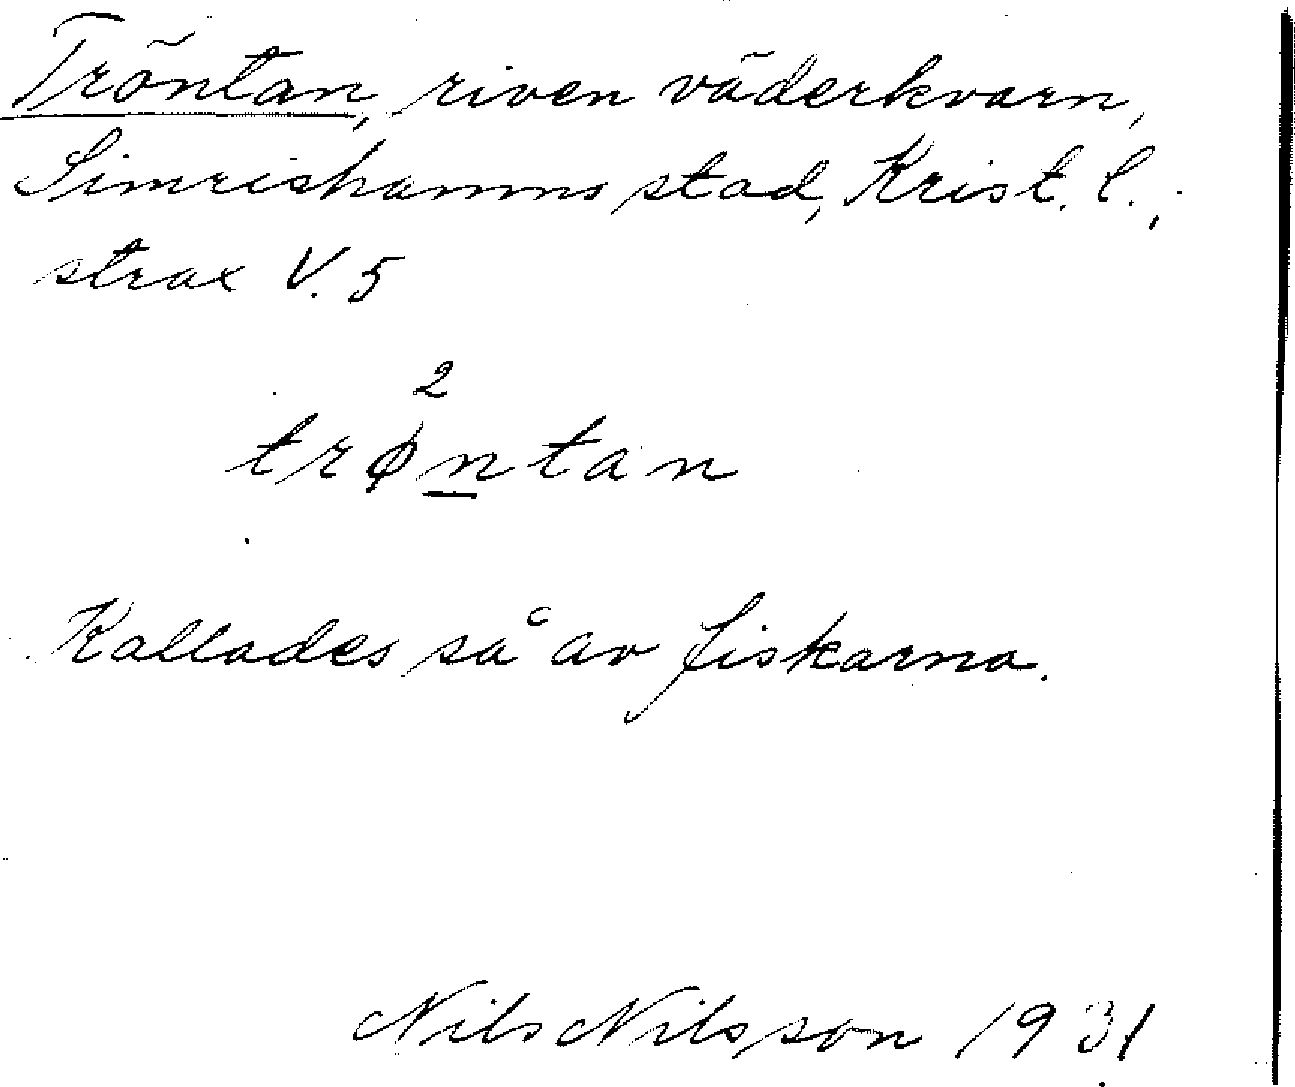 Tröntan, riven väderkvarn,
Simrishamns stad, Krist. l.,
strax V. 5
2
trøntan
Kallades så av fiskarna.
Nils Nilsson 1931